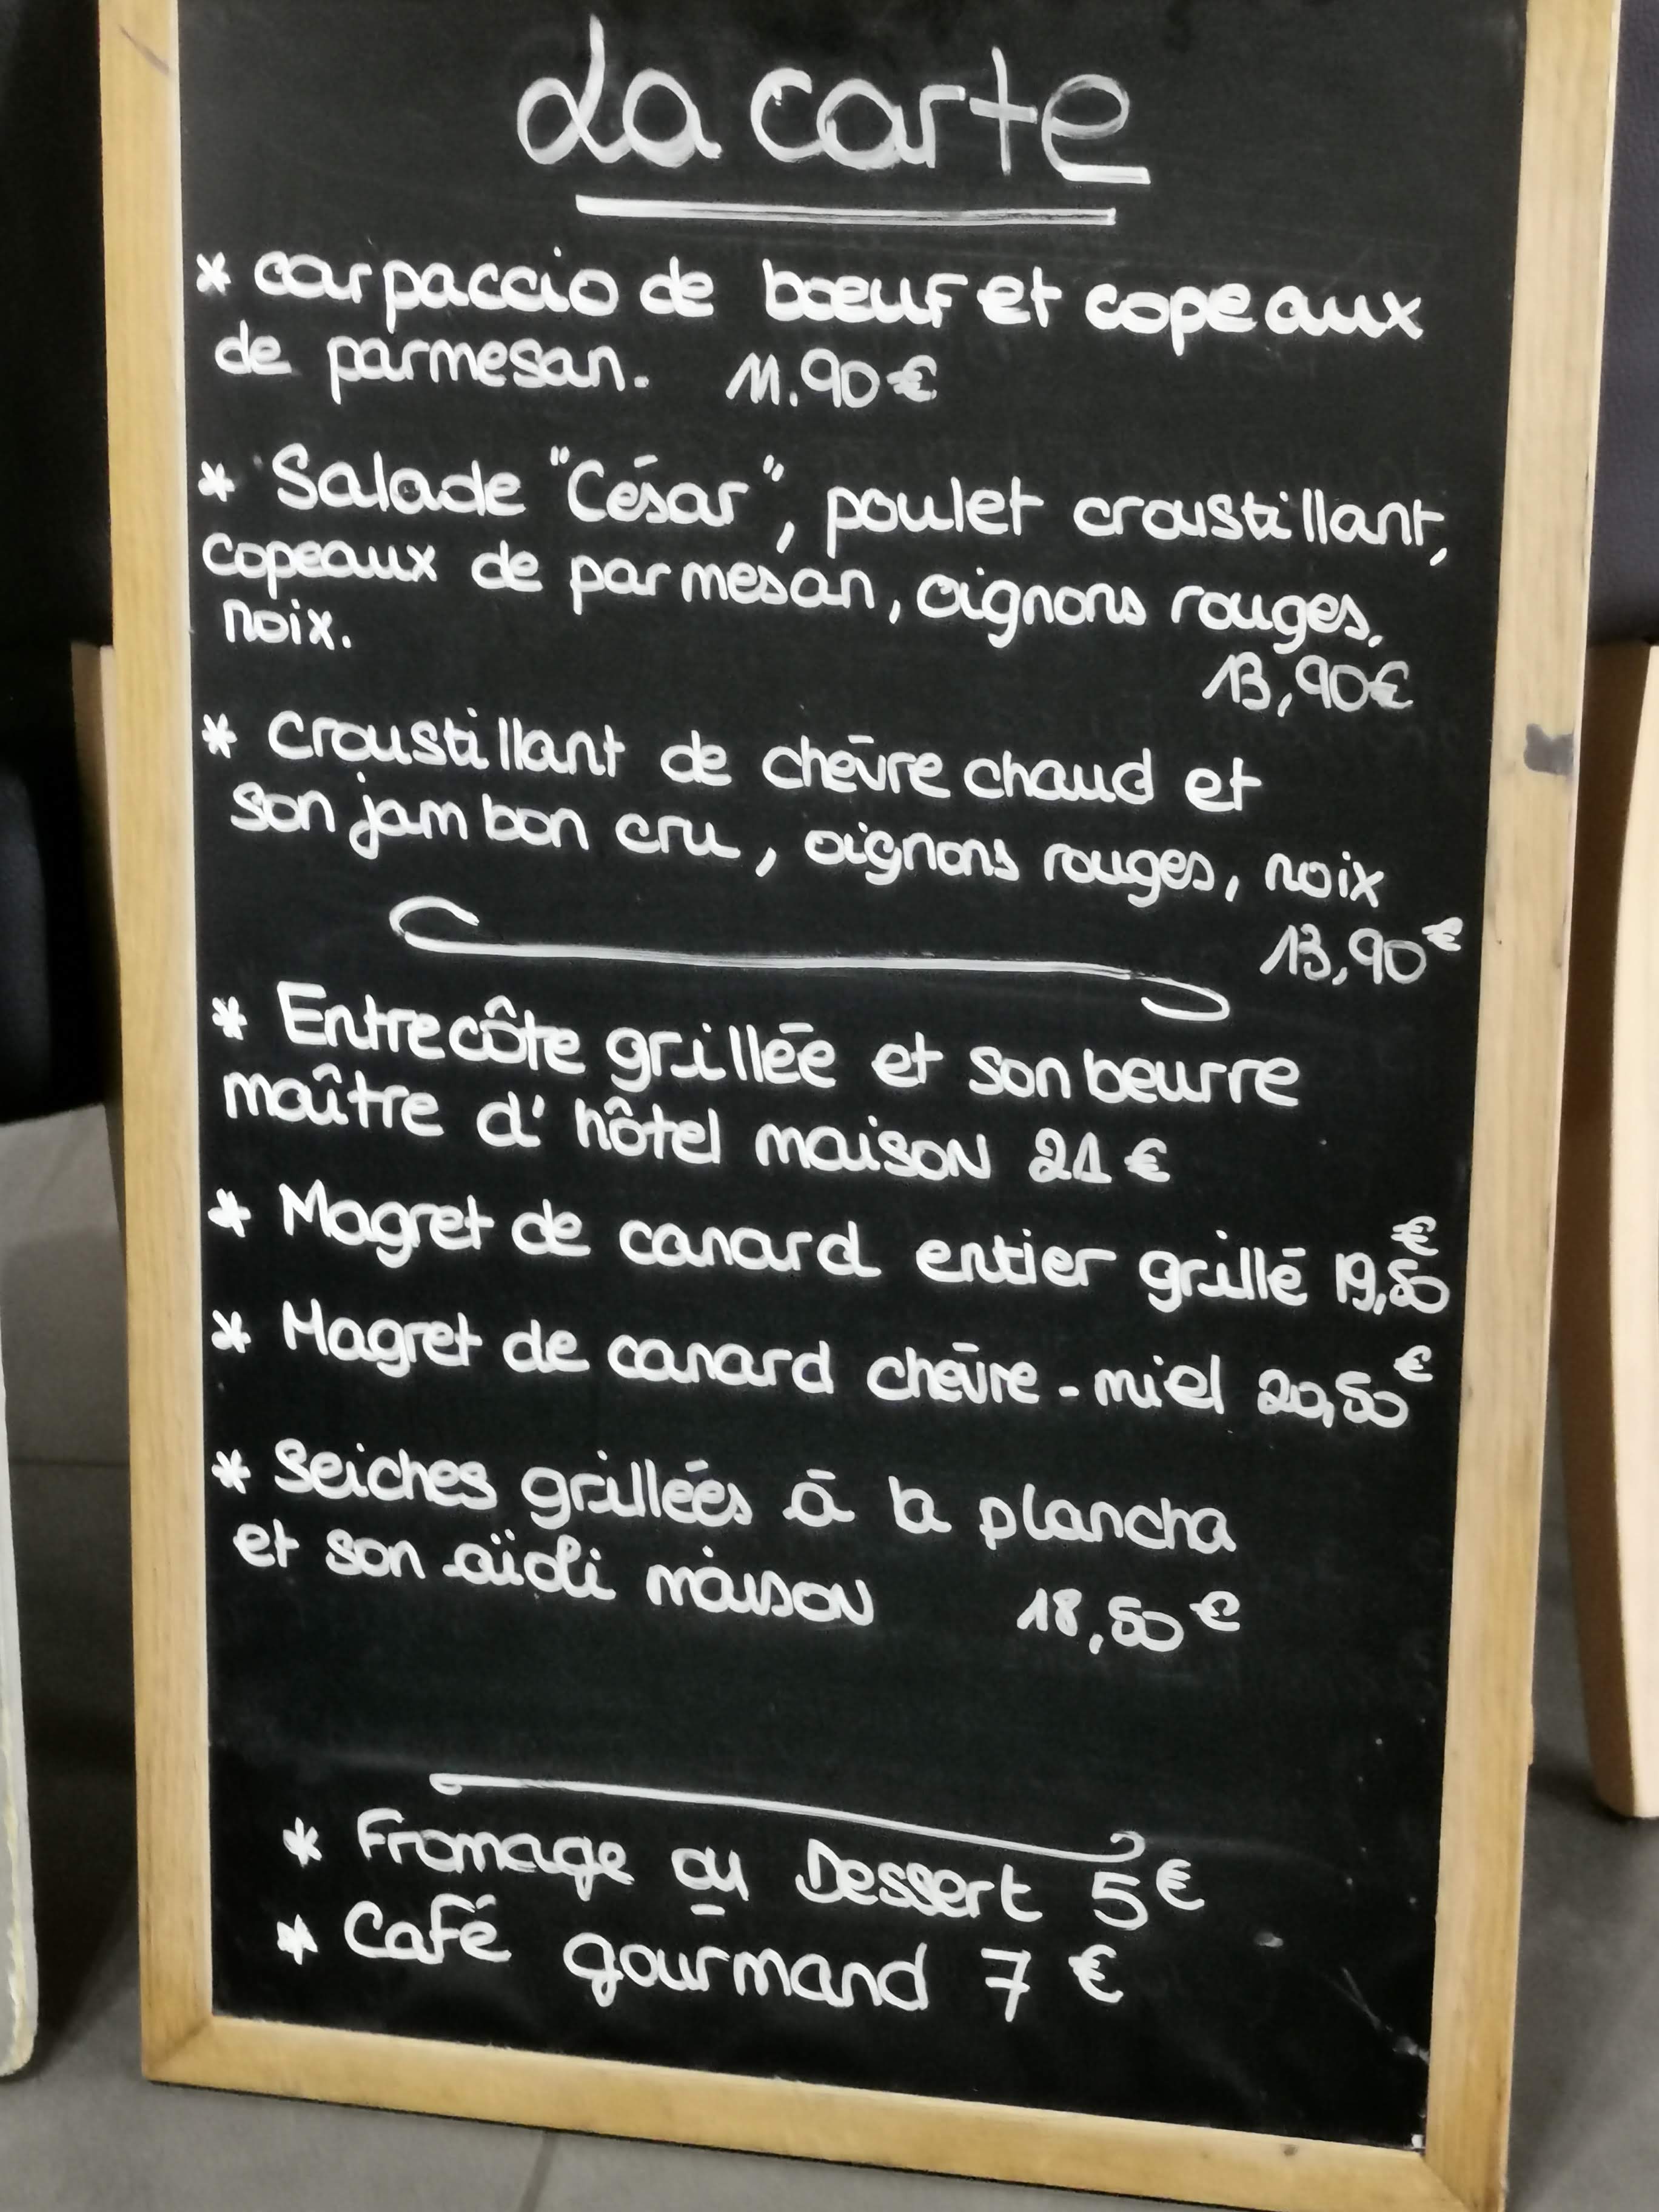 La carte
* carpaccio de bœuf et copeaux
de parmesan. 11.90€
* Salade "César", poulet croustillant,
copeaux de parmesan, oignons rouges,
noix.
13,90€
* croustillant de chèvre chaud et
son jambon cru, oignons rouges, noix
13,90€
* Entrecôte grillée et son beurre
maître d'hôtel maison 21 €
* Magret de canard entier grillé 19,50€
* Magret de canard chèvre-miel 20,50€
* Seiches grillées à la plancha
et son aïoli maison 18,50€
* Fromage ou Dessert 5€
* Café gourmand 7 €